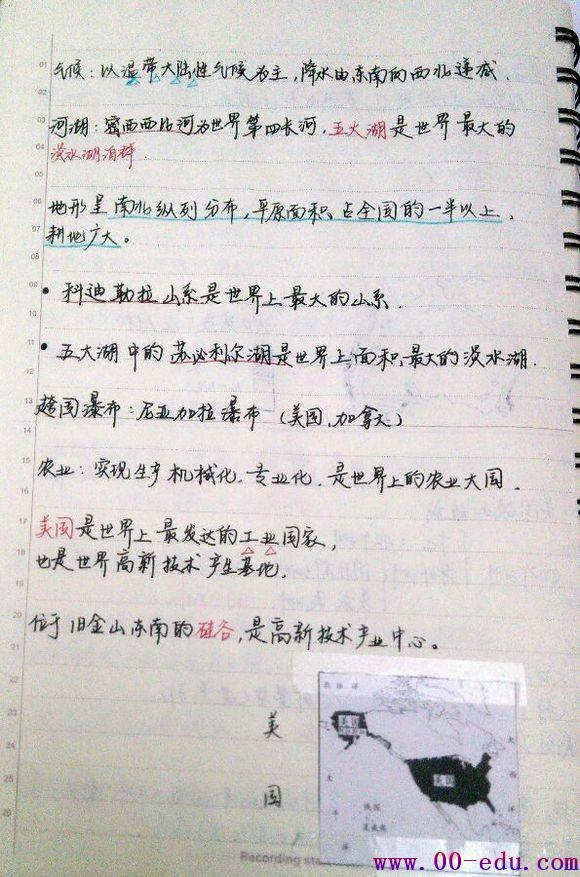 气候：以温带大陆性气候为主，降水由东南向西北递减．
河湖：密西西比河为世界第四长河，五大湖是世界最大的
淡水湖泊群．
地形呈南北纵列分布，平原面积占全国的一半以上，
耕地广大。
• 科迪勒拉山系是世界上最大的山系．
• 五大湖中的苏必利尔湖是世界上面积最大的淡水湖．
跨国瀑布：尼亚加拉瀑布（美国、加拿大）
农业：实现生产机械化，专业化，是世界上的农业大国．
美国是世界上最发达的工业国家，
也是世界高新技术产生基地．
位于旧金山东南的硅谷，是高新技术产业中心。
美
国
北冰洋
美国
美国
大西洋
太平洋
美国
夏威夷
Recording
www.00-edu.com